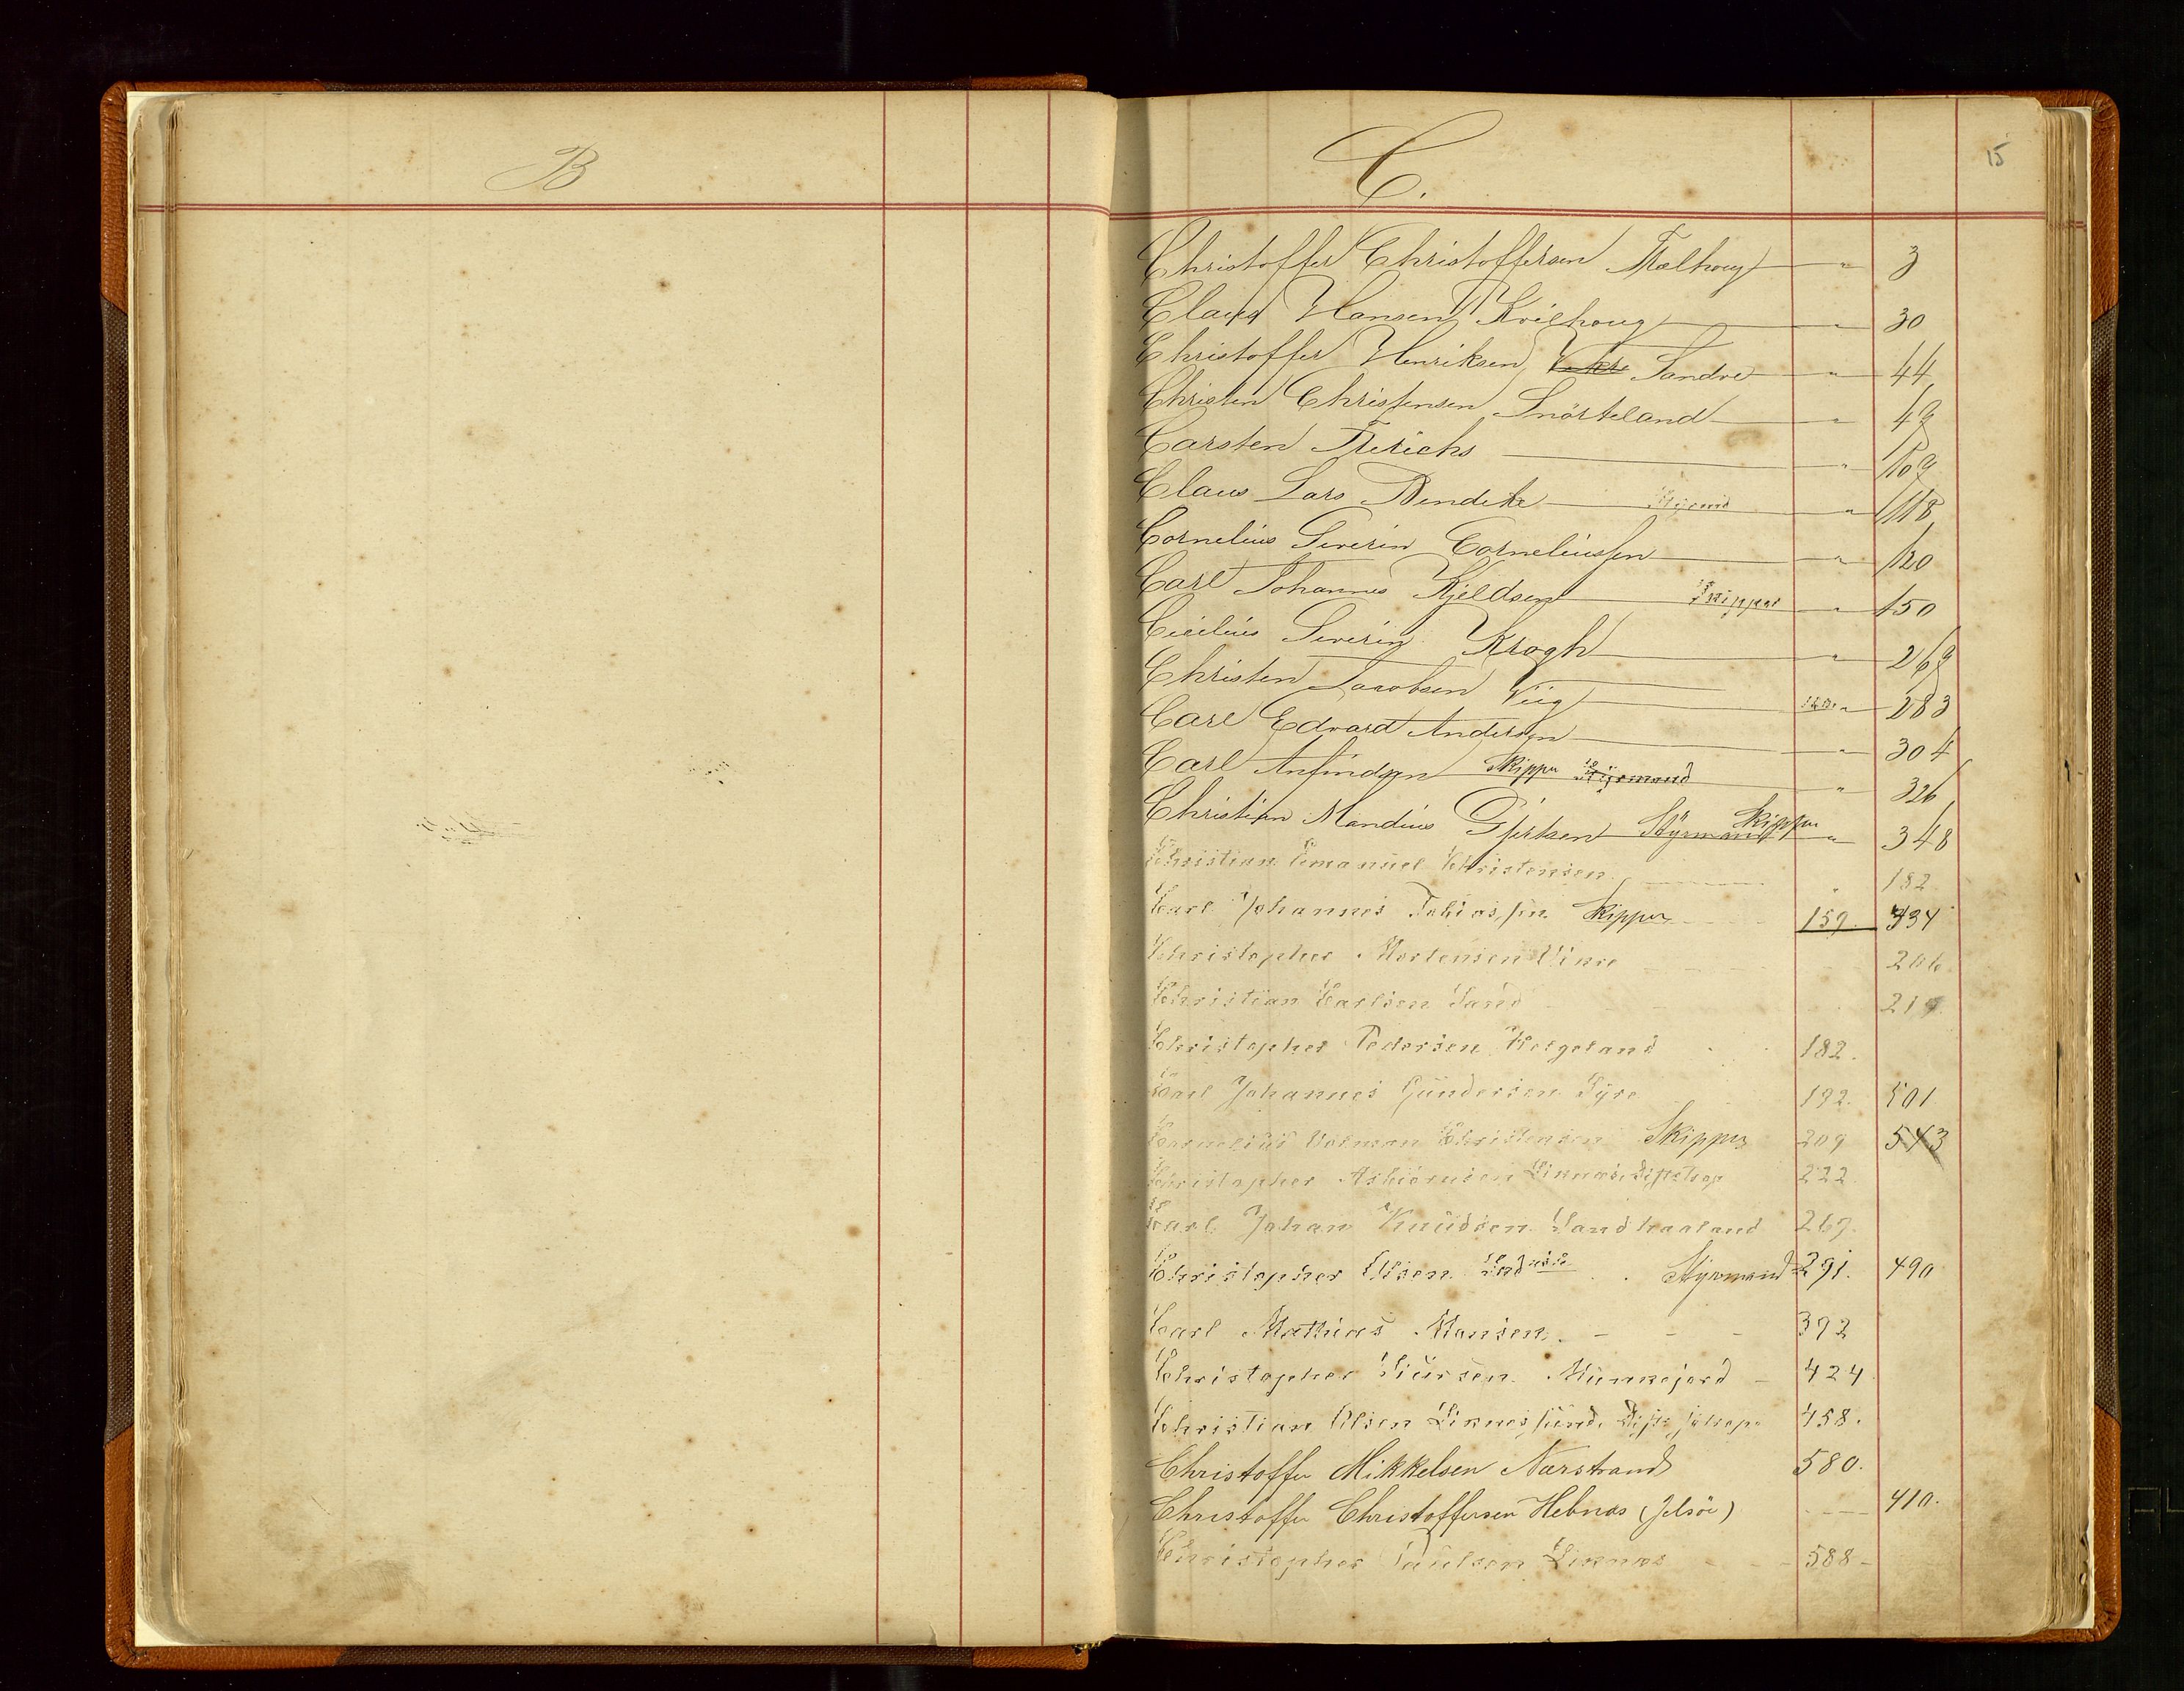 B
C.
15
Christoffer Christoffersen Trælhoug " 3
Claus Hansen Kvilhoug " 30
Christoffer Henriksen Sandve " 44
Christen Christensen Snörteland " 49
Carsten Frerichs " 109
Claus Lars Bendeke Styrmd " 118
Cornelius Severin Corneliussen " 120
Carl Johannes Kjeldsen Skipper " 150
Cicilius Severin Krogh " 269
Christen Jacobsen Viig " 283
Carl Edvard Andersen " 304
Carl Anfindsen Skipper Styrmand " 326
Christian Mandius Gjertsen Styrmand Skipper " 348
Christian Emanuel Christensen " 182
Carl Johannes Tobiassen Skipper 159. 434
Christopher Mortensen Vinre 206.
Christian Carlsen Sand 219.
Christopher Pedersen Helgeland 182.
Carl Johannes Gundersen Tyre 192. 501
Cornelius Volman Christensen Skipper 209 543
Christopher Asbiørnsen 222
Carl Johan Knudsen Sandhaaland 267.
Christopher Olsen Styrmand 291. 490
Carl Mathias Monsen. 392
Christopher Siursen Munkejord 424
Christian Olsen 458.
Christoffer Mikkelsen Narstrand 580.
Christoffer Christoffersen Hebnæs (Jelsöe) 410.
Christopher Paulsen Liknæs 588